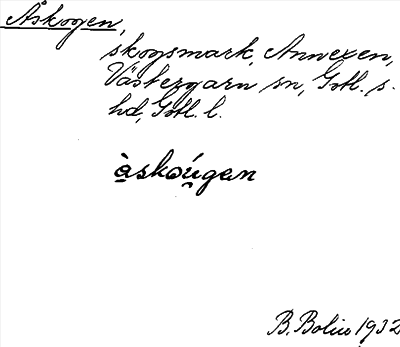 Åskogen,
skogsmark, Annexen,
Västergarn sn, Gotl. s.
hd, Gotl. l.
àskoúgan
B. Bolin 1932